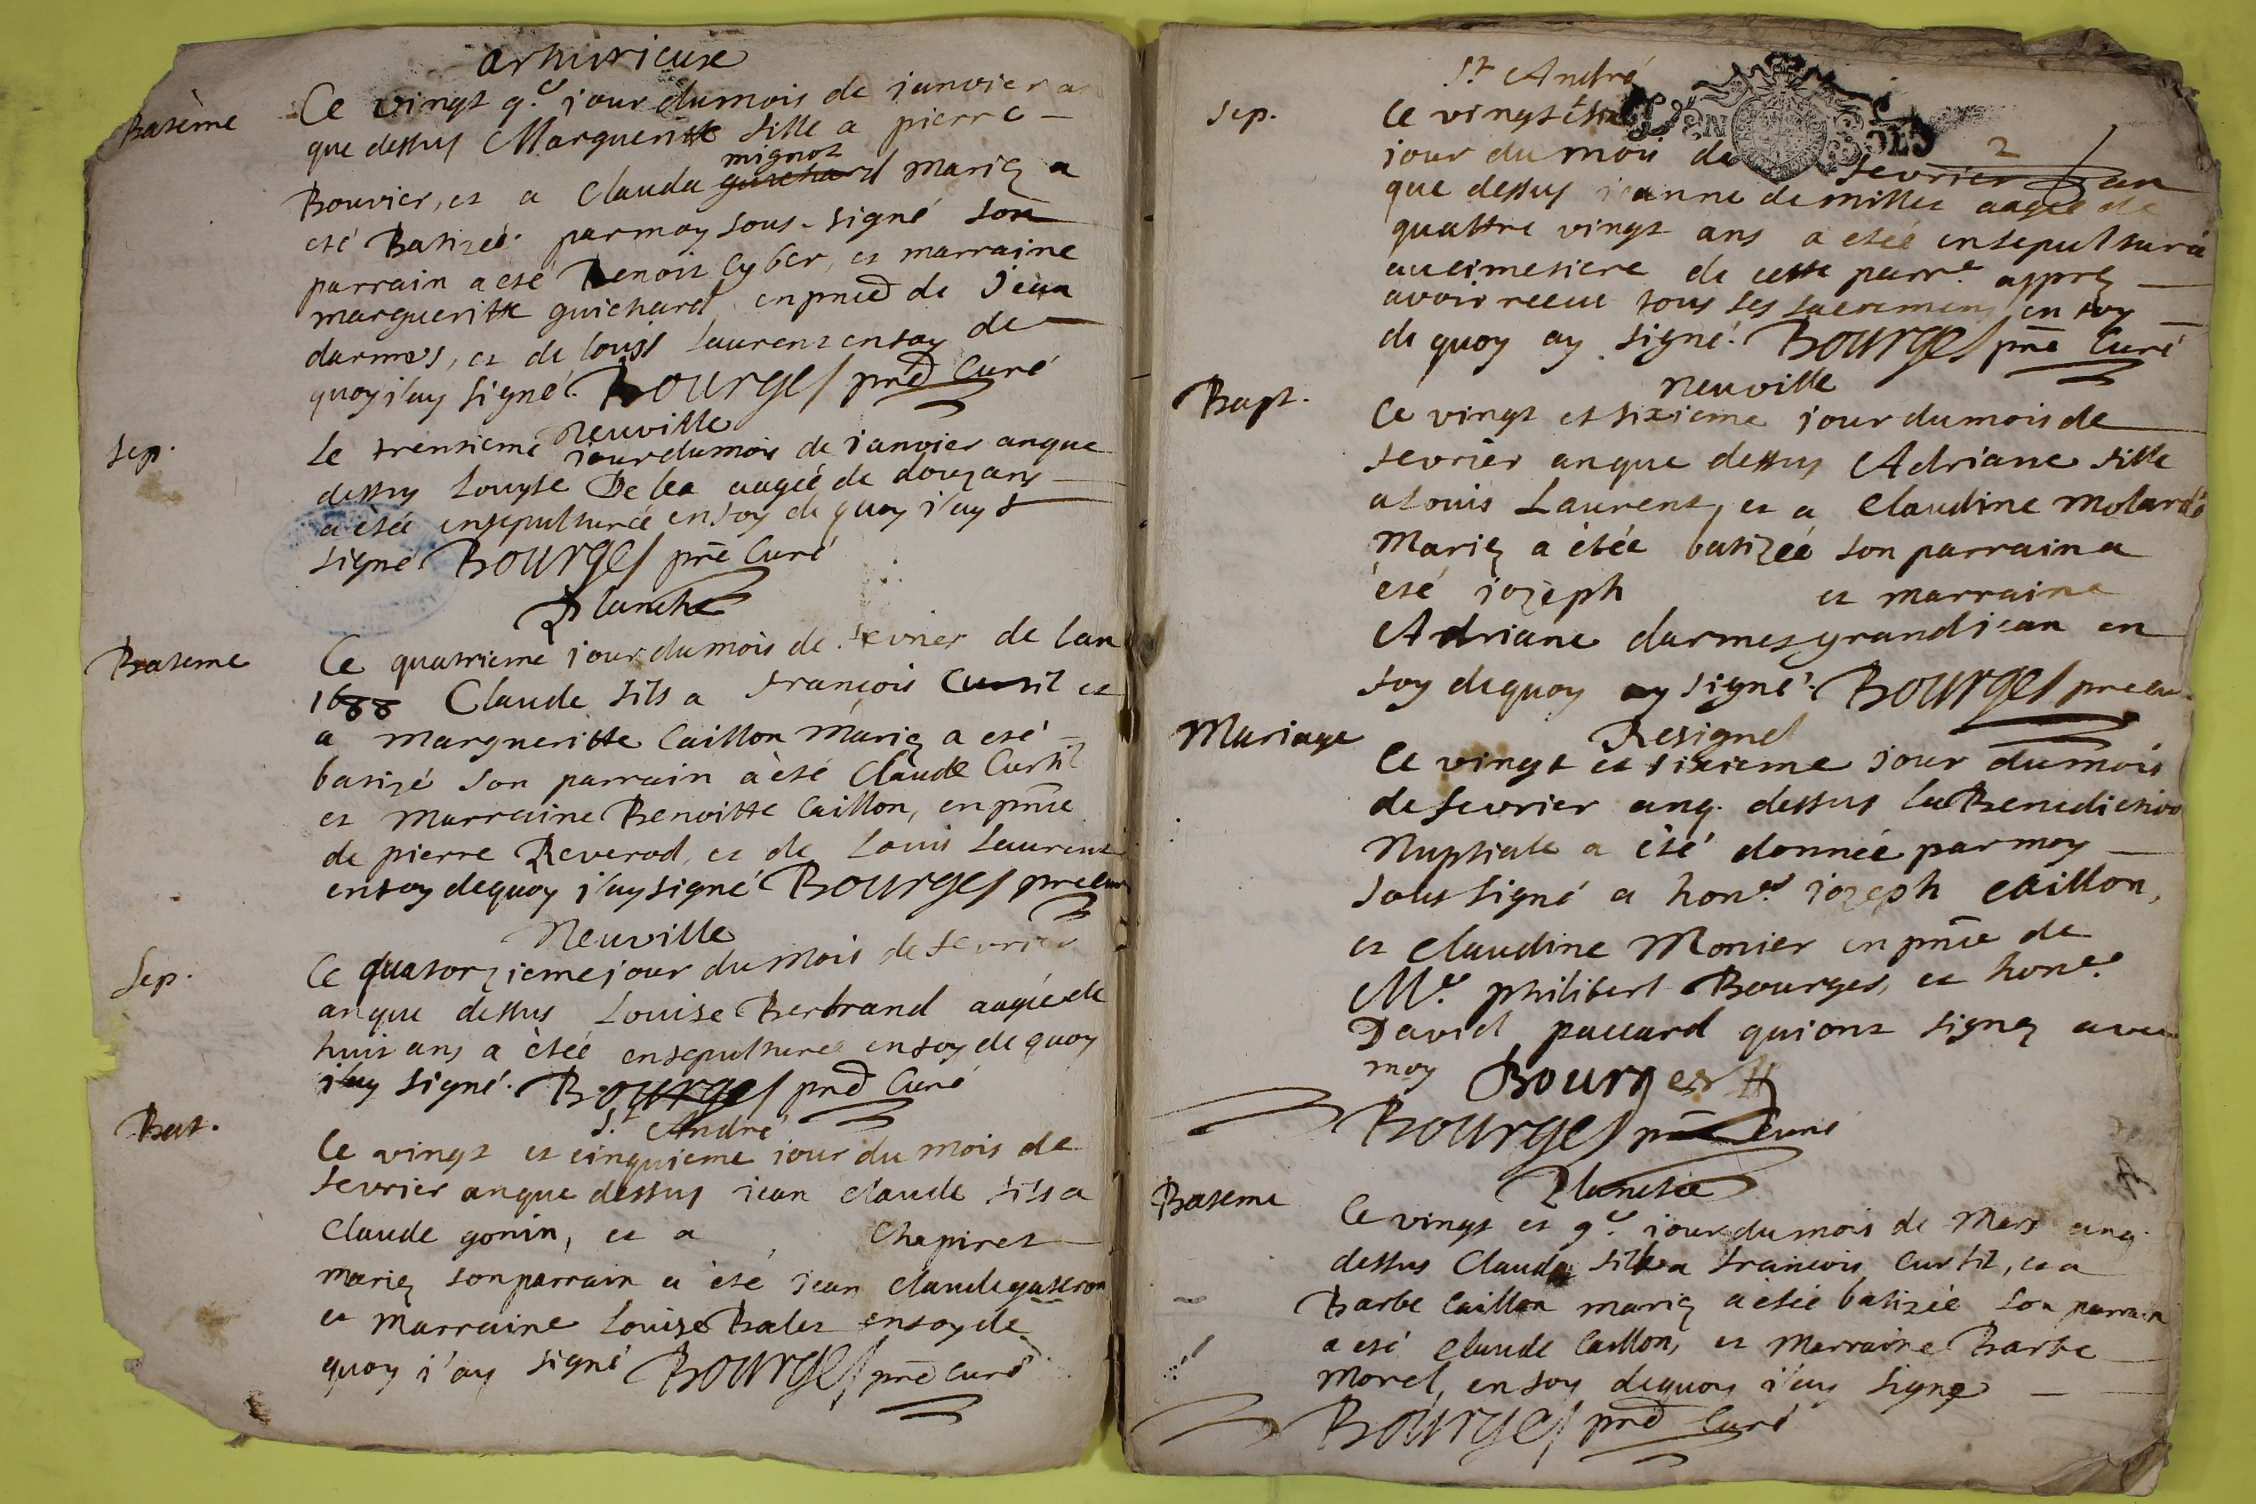 arhurieux
Batème
Ce vingt q.e jour du mois de janvier an
que dessus Margueritte fille a pierre
mignot
Bouvier, et a Clauda guichard mariez a
esté Batizée par moy sous-signé son
parrain a esté Benoit Cyber, et marraine
margueritte guichard en pnce de Jean
darmes, et de louis Laurent en foy de
quoy j'ay signé. Bourges pre Curé
Neuville
Sep.
Le trentieme jour du mois de janvier an que
dessus Louyse De lea aagée de douz ans
a étée ensepulturée en foy de quoy j'ay
signé Bourges pre Curé
Planche
Bateme
Ce quatrieme jour du mois de fevrier de lan
1688 Claude fils a francois Curtil et
a margueritte Caillon mariez a esté
batizé son parrain a èté Claude Curtil
et Marraine Benoitte Caillon, en pnce
de pierre Reverod, et de Louis Laurent
en foy de quoy j'ay signé Bourges pre cur
Neuville
Sep.
Ce quatorzieme jour du mois de fevrier
an que dessus Louise Bertrand aagée de
huit ans a ètée ensepulturee en foy de quoy
j'ay signé. Bourges pre Curé
S.t André
Bat.
Ce vingt et cinquieme jour du mois de
fevrier an que dessus jean claude fils a
Claude gonin, et a Chapiret
mariez son parrain a èté jean claude gutton
et marraine Louise Balet en foy de
quoy j'ay signé Bourges pre curé
S.t André
Sep.
Ce vingt
jour du mois de fevrier an
2
que dessus jeanne demillet aagée de
quattre vingt ans a etée ensepulturée
au cimetiere de cette parr.e apprez
avoir receu tous ses sacremens en foy
de quoy ay signé. Bourges pre Curé
Neuville
Bapt.
Ce vingt et sixieme jour du mois de
fevrier an que dessus Adriane fille
a Louis Laurent, et a Claudine Molard
Mariez a étée batizée son parrain a
èté jozeph et marraine
Adriane darmes grandjean en
foy de quoy ay signé. Bourges pre cu.
Resignel
Mariage
Ce vingt et sixieme jour du mois
de fevrier anq. dessus la Benediction
Nuptiale a èté donnée par moy
sous signé a hon.e jozeph Caillon,
et Claudine Monier en pnce de
M.e philibert Bourges, et hon.e
David paccard qui ont signez avec
moy Bourges
Bourges pre Curé
Planche
Bateme
Ce vingt et q.e jour du mois de Mars anq.
dessus Clauda fille a francois Curtil, et a
Barbe Caillon mariez a étée batizée son parrain
a été Claude Caillon, et Marraine Barbe
Morel, en foy de quoy j'ay signe
Bourges pre Curé